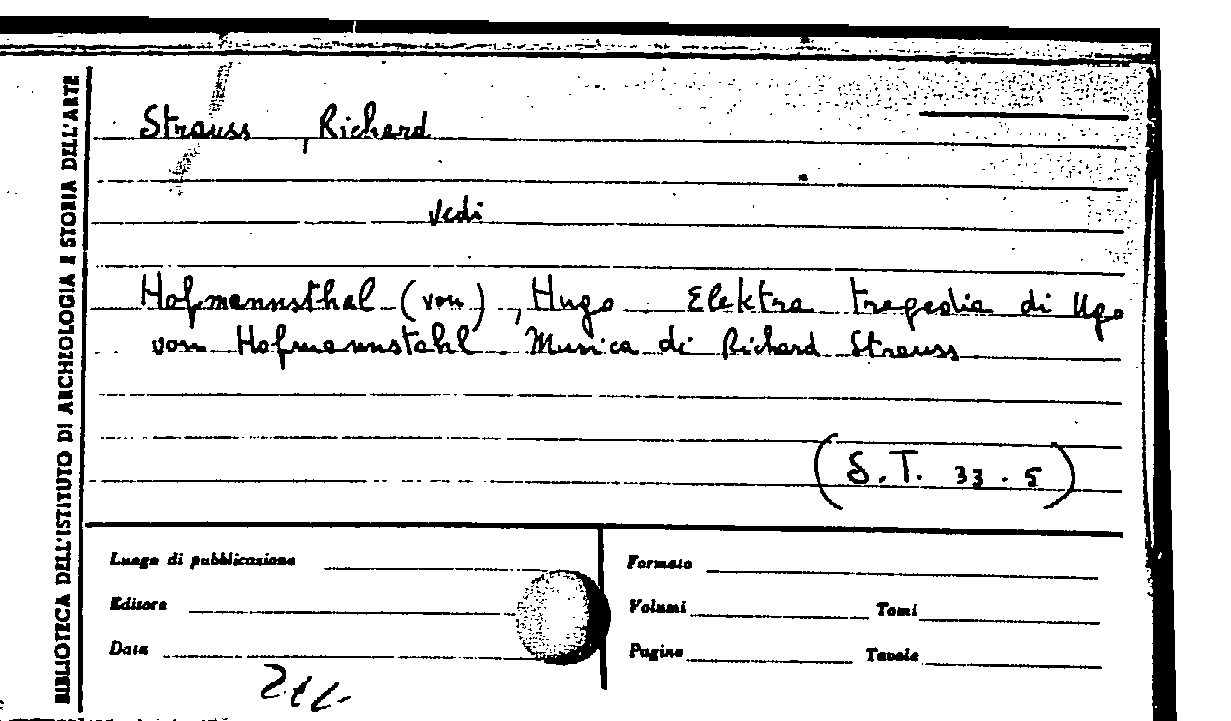 BIBLIOTECA DELL'ISTITUTO DI ARCHEOLOGIA E STORIA DELL'ARTE
Strauss, Richard
Vedi
Hofmannsthal (von), Hugo. Elektra tragedia di Ugo
von Hofmannstahl. Musica di Richard Strauss
(S.T. 33.5)
Luogo di pubblicazione
Editore
Data
Formato
Volumi Tomi
Pagine Tavole